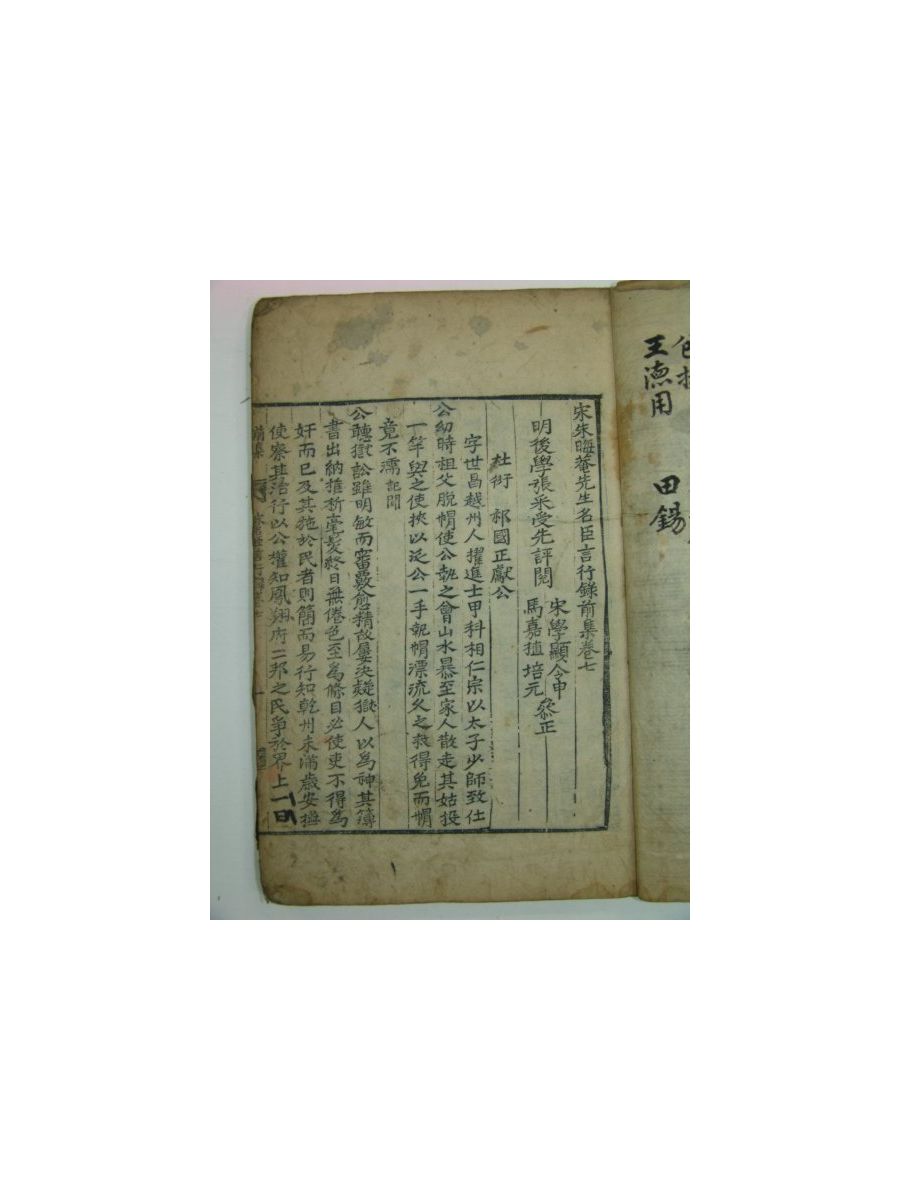 王德用
田錫
宋朱晦菴先生名臣言行錄前集卷七
明後學張采受先評閱 宋學顯令申
馬嘉植培元 叅正
杜衍 祁國正獻公
字世昌越州人擢進士甲科相仁宗以太子少師致仕
公幼時祖父脫帽使公執之會山水暴至家人散走其姑投
一竿與之使挾以泛公一手執帽漂流久之救得免而帽
竟不濡記聞
公聽獄訟雖明敏而審覈愈精故屢決疑獄人以為神其簿
書出納推析毫髮終日無倦色至為條目必使吏不得為
奸而已及其施於民者則簡而易行知乾州未滿歲安撫
使察其治行以公權知鳳翔府二邦之民爭於界上一曰
前集